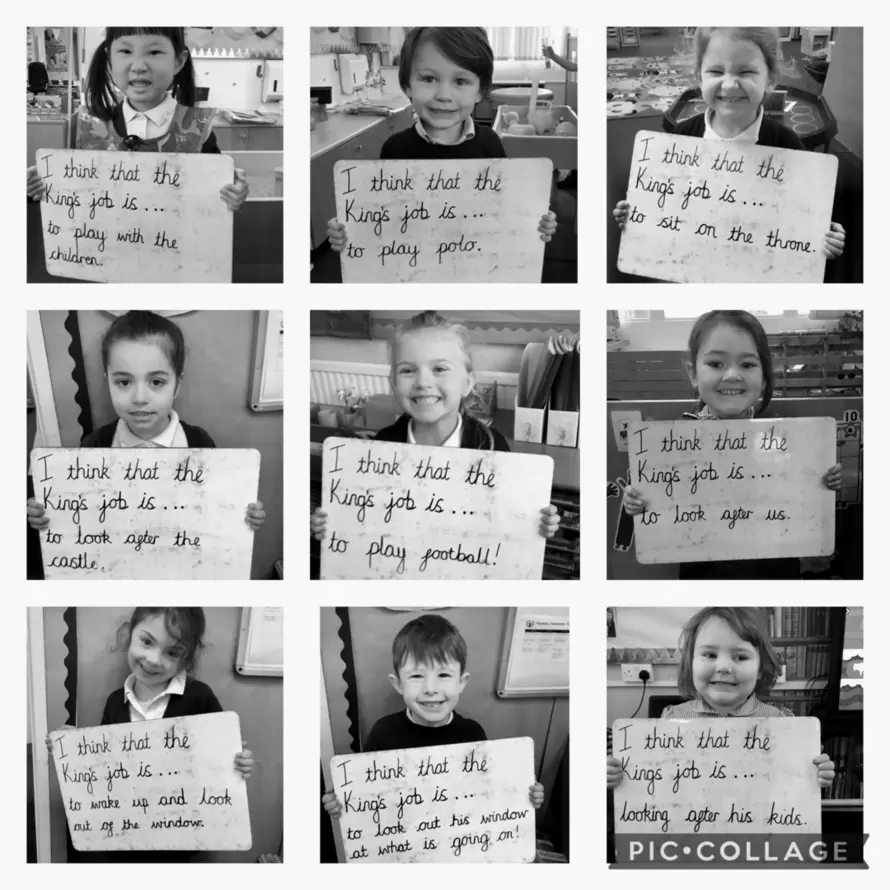 I think that the
King's job is...
to play with the
children.
I think that the
King's job is...
to play polo.
I think that the
King's job is...
to sit on the throne.
I think that the
King's job is...
to look after the
castle.
I think that the
King's job is...
to play football!
I think that the
King's job is...
to look after us.
10
I think that the
King's job is...
to wake up and look
out of the window.
I think that the
King's job is...
to look out his window
at what is going on!
I think that the
King's job is...
looking after his kids.
PIC•COLLAGE